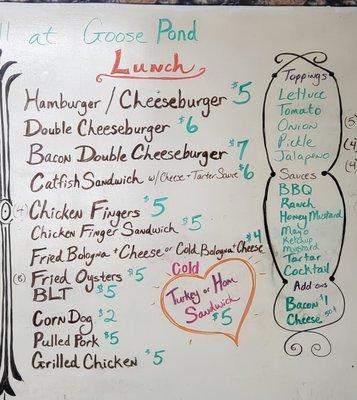 at Goose Pond
Lunch
Hamburger / Cheeseburger $5
Double Cheeseburger $6
Bacon Double Cheeseburger $7
Catfish Sandwich w/ Cheese + Tarter Sauce $6
(4) Chicken Fingers $5
Chicken Finger Sandwich $5
Fried Bologna + Cheese or Cold Bologna + Cheese $4
Fried Oysters $5
BLT $5
Corn Dog $2
Pulled Pork $5
Grilled Chicken $5
Cold
Turkey or Ham
Sandwich
$5
Toppings
Lettuce
Tomato
Onion
Pickle
Jalapeno
Sauces
BBQ
Ranch
Honey Mustard
Mayo
Ketchup
Mustard
Tartar
Cocktail
Add-ons
Bacon $1
Cheese 50¢